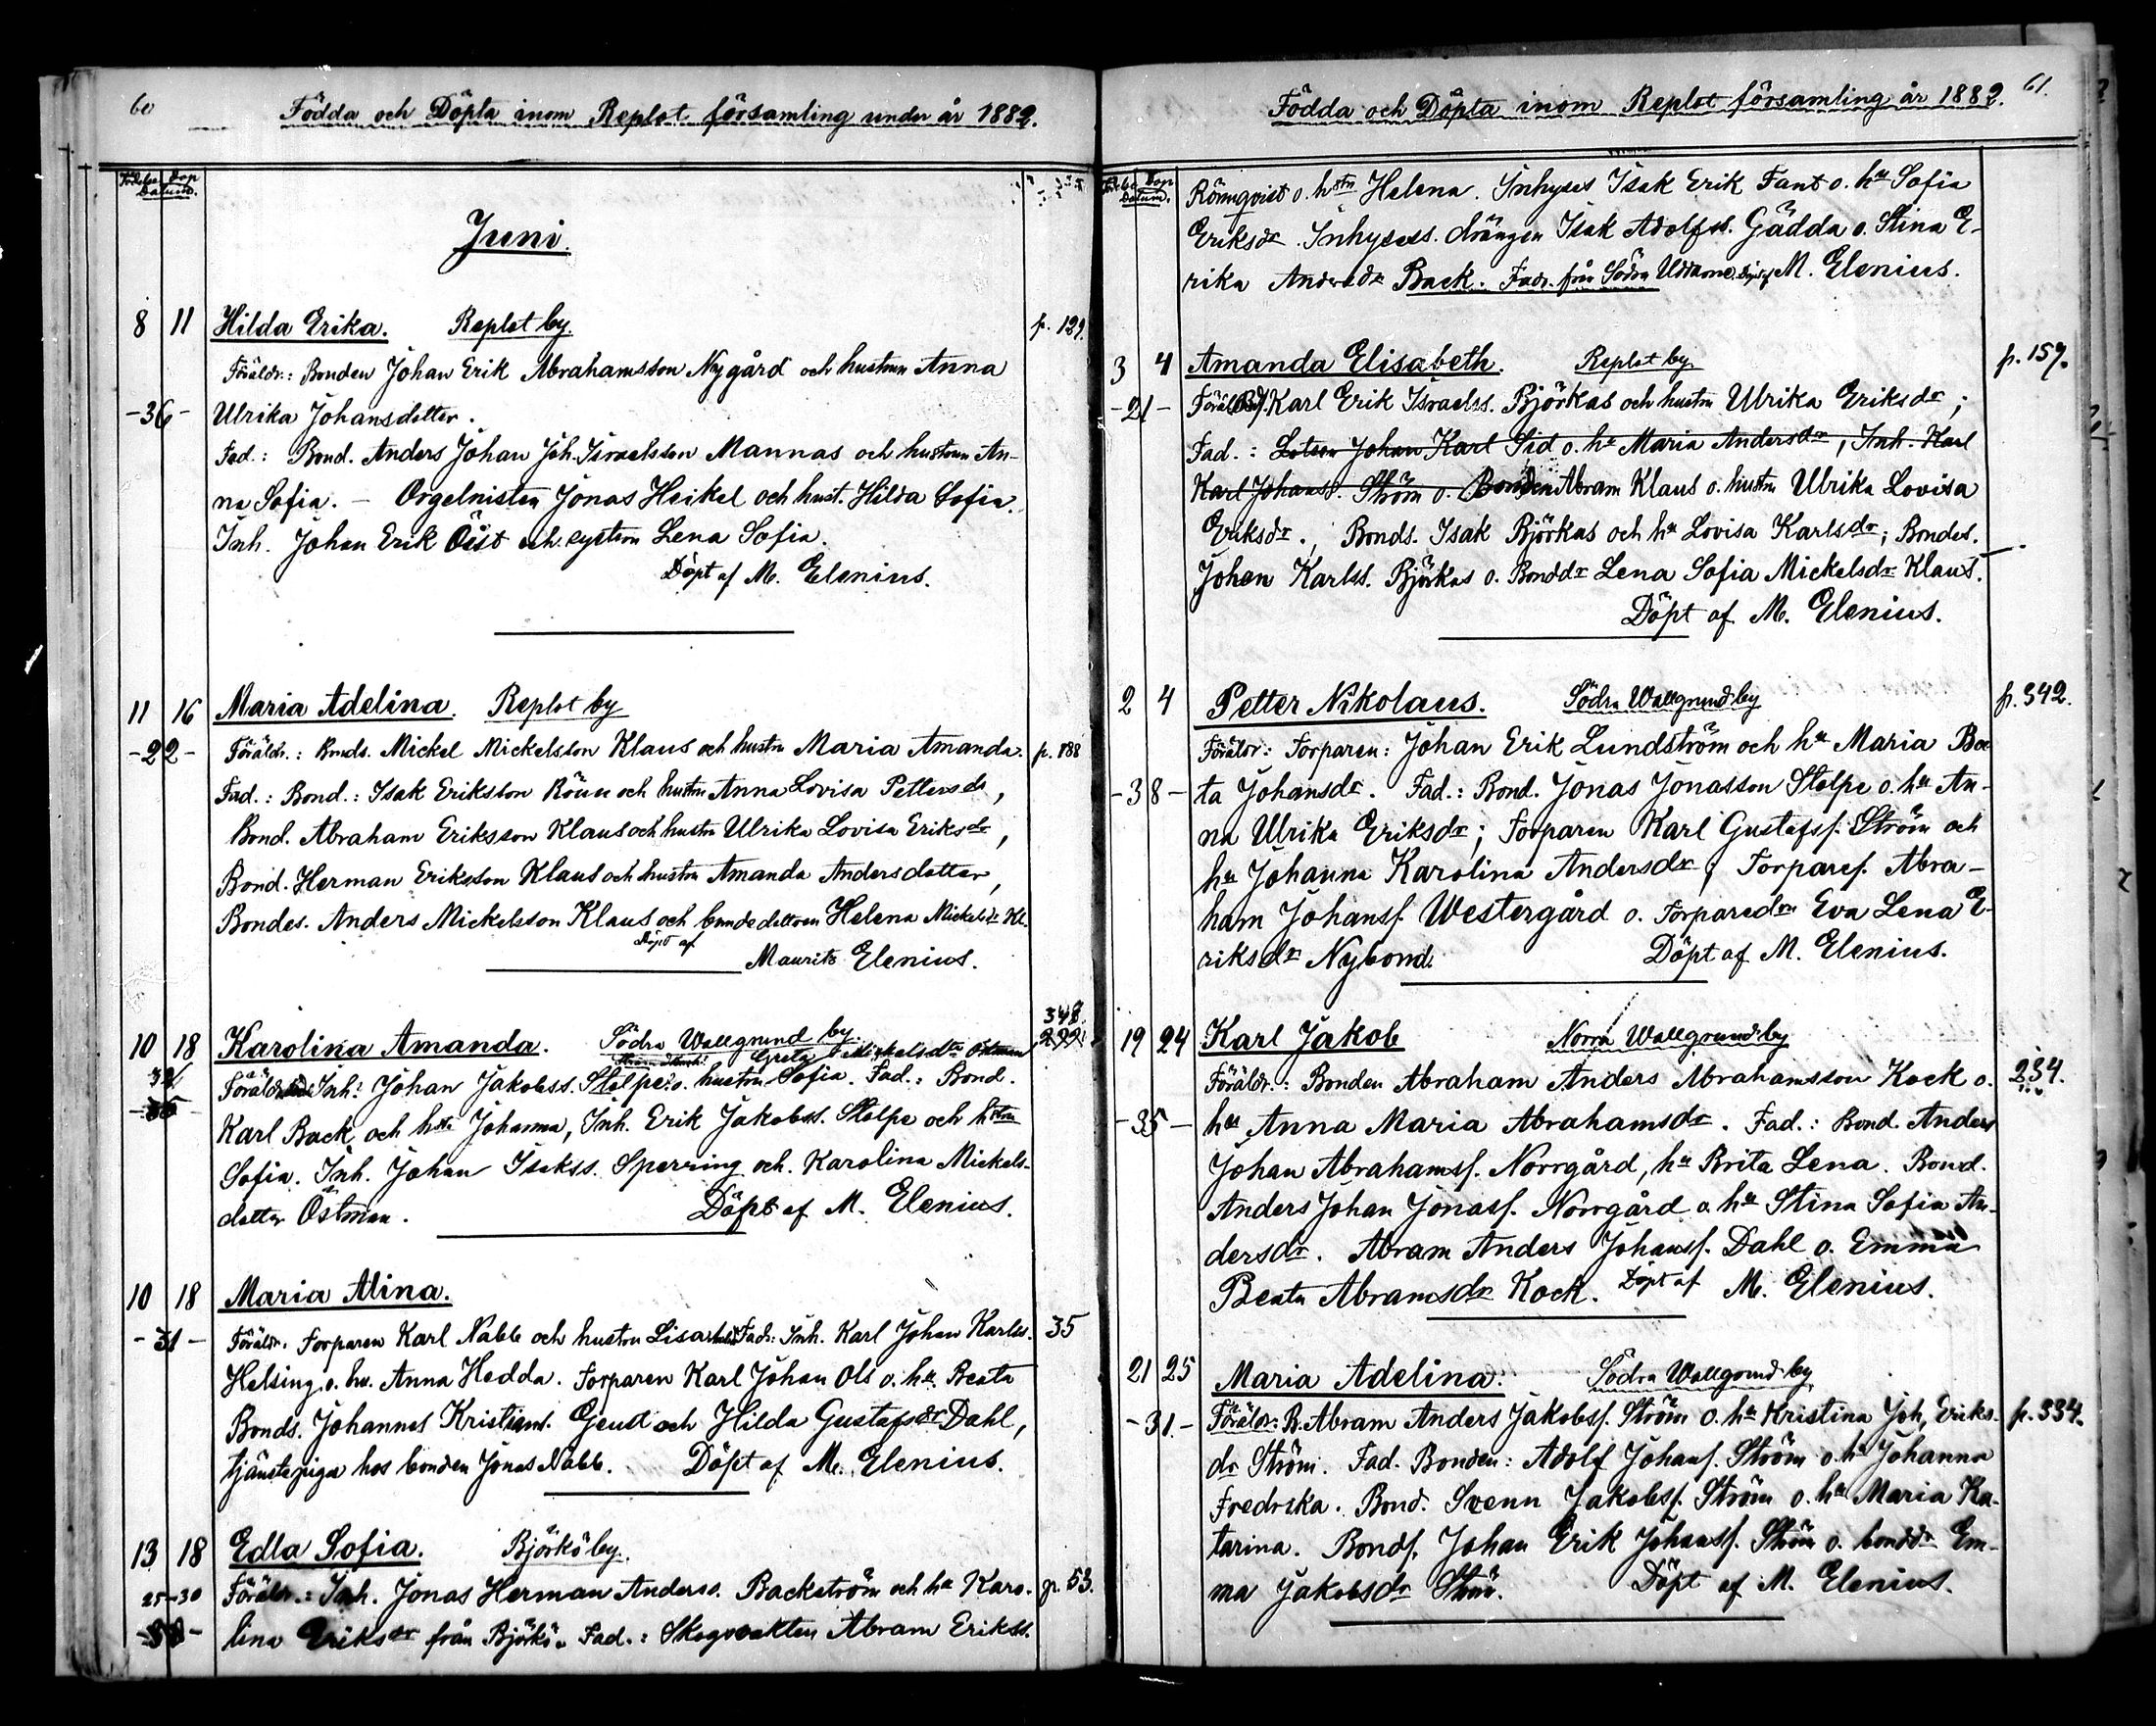 60
Födda och Döpta inom Replot församling under år 1882.
Födelse Dop
Datum.
Juni.
8 11 Hilda Erika. Replot by. p. 129.
Föräldr.: Bonden Johan Erik Abrahamsson Nygård och hustrun Anna
-36- Ulrika Johansdotter.
Fad.: Bond. Anders Johan Joh. Israelsson Mannas och hustrun An-
na Sofia. - Orgelnisten Jonas Heikel och hust. Hilda Sofia.
Inh. Johan Erik Öist och systern Lena Sofia.
Döpt af M. Elenius.
11 16 Maria Adelina. Replot by
-22- Föräldr.: Bonds. Mickel Mickelsson Klaus och hustru Maria Amanda. p. 188
Fad.: Bond.: Isak Eriksson Rönn och hustru Anna Lovisa Pettersdr,
Bond. Abraham Eriksson Klaus och hustru Ulrika Lovisa Eriksdr,
Bond. Herman Eriksson Klaus och hustru Amanda Andersdotter,
Bondes. Anders Mickelsson Klaus och bondedottren Helena Mickelsdr Kl.
Döpt af
Maurits Elenius.
348.
10 18 Karolina Amanda. Södra Wallgrund by 292.
Greta Mickelsdtr Östman
Föräldr. Inh: Johan Jakobss. Stolpe o. hustru Sofia. Fad.: Bond.
Karl Back och hstr Johanna, Inh. Erik Jakobss. Stolpe och hstru
Sofia. Inh. Johan Isakss. Sperring och Karolina Mickels-
dotter Östman. Döpt af M. Elenius.
10 18 Maria Alina.
-31- Föräldr. Torparen Karl Nabb och hustru Lisa Fadr: Inh. Karl Johan Karlss. 35
Helsing o. hu. Anna Hedda. Torparen Karl Johan Ols o. hu. Beata
Bonds. Johannes Kristians. Geust och Hilda Gustafsdr Dahl,
tjänstepiga hos bonden Jonas Nabb. Döpt af M. Elenius.
13 18 Edla Sofia. Björkö by.
25-30 Föräldr.: Inh. Jonas Herman Anderss. Backström och hu Karo- p. 53.
lina Eriksdr från Björkö. Fad.: Skogvakten Abram Erikss.
Födda och Döpta inom Replot församling år 1882. 61.
Dop
Datum.
Rönnqvist o. hstru Helena. Inhyses Isak Erik Fant o. hu Sofia
Eriksdr. Inhysess. drängen Isak Adolfss. Gädda o. Stina E-
rika Andersdr Back. Fadr. från Södra Uddarne. Döpt af M. Elenius.
3 4 Amanda Elisabeth. Replot by p. 157.
-21- Föräldr. Karl Erik Israelss. Björkas och hustru Ulrika Eriksdr;
Fad.: Lotsen Johan Karl Sid o. hu Maria Andersdr, Inh. Karl
Karl Johanss. Ström o. Bonden Abram Klaus o. hustru Ulrika Lovisa
Eriksdr.; Bonds. Isak Björkas och hu Lovisa Karlsdr; Bondes.
Johan Karlss. Björkas o. Bonddr Lena Sofia Mickelsdr Klaus.
Döpt af M. Elenius.
2 4 Petter Nikolaus. Södra Wallgrund by p. 342.
Föräldr: Torparen: Johan Erik Lundström och hu Maria Bea
-38- ta Johansdr. Fad.: Bond. Jonas Jonasson Stolpe o. hu An-
na Ulrika Eriksdr; Torparen Karl Gustafss. Ström och
hu Johanna Karolina Andersdr; Torpares. Abra-
ham Johanss. Westergård o. Torparedrn Eva Lena E-
riksdr Nybond. Döpt af M. Elenius.
19 24 Karl Jakob Norra Wallgrund by
Föräldr.: Bonden Abraham Anders Abrahamsson Kock o. 234.
-35- hu Anna Maria Abrahamsdr. Fad.: Bond. Anders
Johan Abrahamss. Norrgård, hu Brita Lena. Bond.
Anders Johan Jonass. Norrgård o. hu Stina Sofia An-
dersdr. Abram Anders Johanss. Dahl o. Emma
Beata Abramsdr Kock. Döpt af M. Elenius.
21 25 Maria Adelina. Södra Wallgrund by
-31- Föräldr: B. Abram Anders Jakobss. Ström o. hu Kristina Joh. Eriks- p. 334.
dr Ström. Fad. Bonden: Adolf Johans. Ström o. hu Johanna
Fredrika. Bond. Svenn Jakobss. Ström o. hu Maria Ka-
tarina. Bonds. Johan Erik Johanss. Ström o. bonddr Em-
ma Jakobsdr Ström. Döpt af M. Elenius.